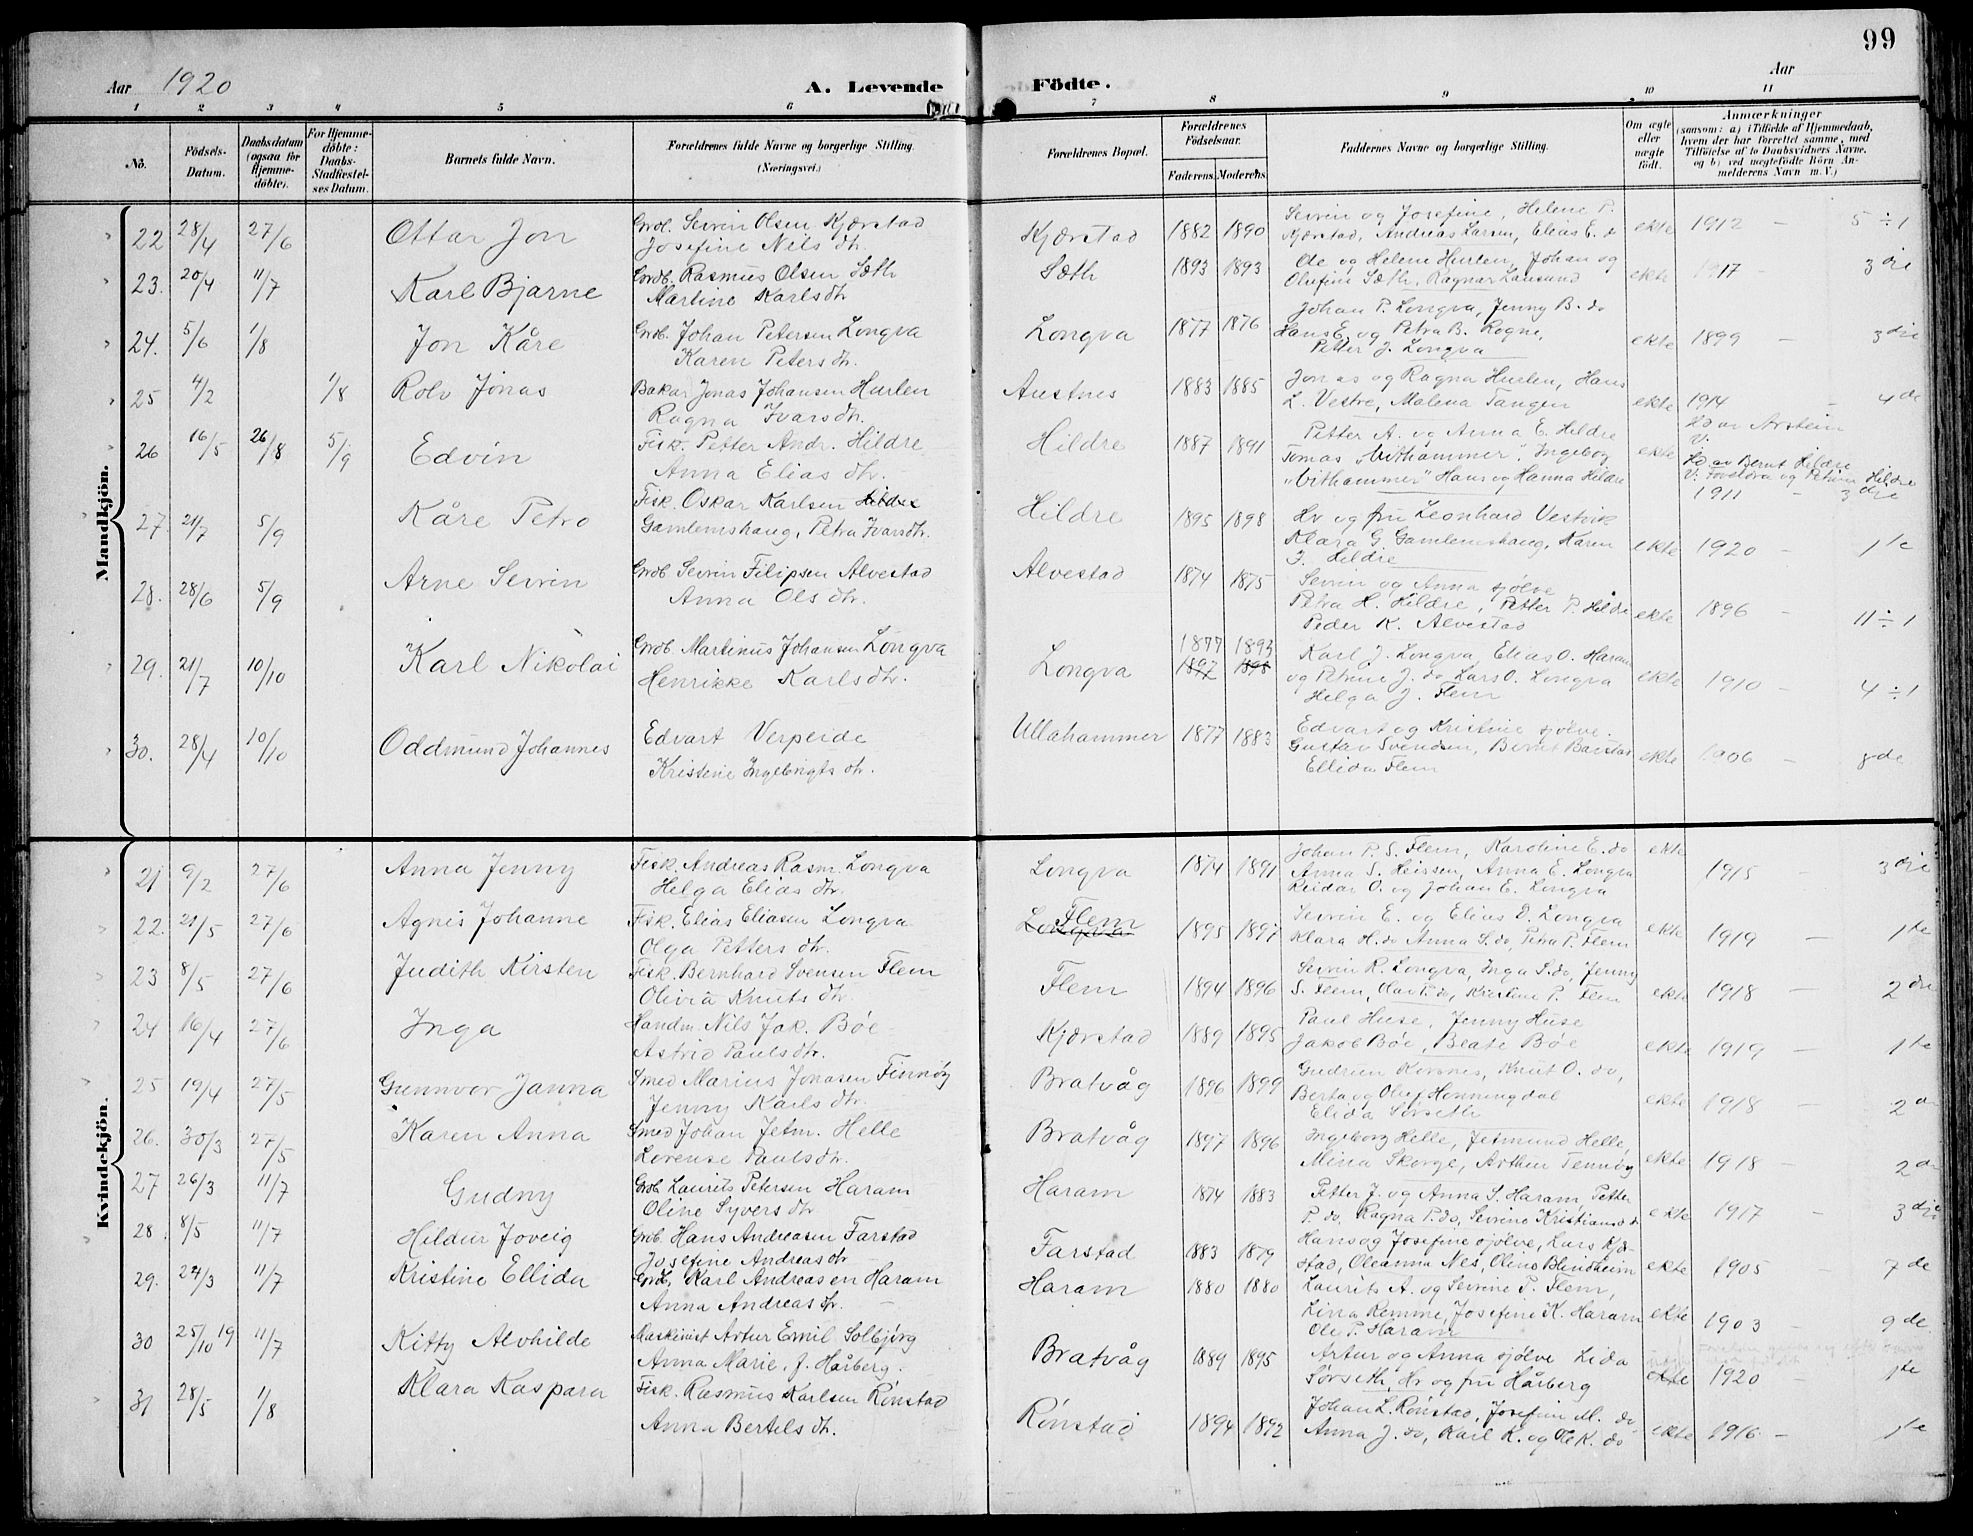 99
Aar 1920
A. Levende
Födte.
Aar
1 2 3 4 5 6 7 8 9 10 11
No.
Födsels-Datum.
Daabsdatum (ogsaa for Hjemmedöbte).
For Hjemmedöbte: Daabs-Stadfestelses Datum.
Barnets fulde Navn.
Forældrenes fulde Navne og borgerlige Stilling. (Næringsvei.)
Forældrenes Bopæl.
Forældrenes Födselsaar.
Faderens. Moderens.
Faddernes Navne og borgerlige Stilling.
Om ægte eller uægte födt.
Anmærkninger
(saasom: a) i Tilfælde af Hjemmedaab, hvem der har forrettet samme, med Tilföielse af to Daabsvidners Navne, og b) ved uægtefödte Börn Anmelderens Navn m. V.)
Mandkjön.
22 28/4 27/6 Ottar Jon Grdb. Sevrin Olsen Kjærstad
Josefine Nilsdtr. Kjærstad 1882 1890 Sevrin og Josefine, Helene P.
Kjærstad, Andreas Larsen, Elias E. do ekte 1912 - 5 ÷ 1
23. 20/4 11/7 Karl Bjarne Grdb. Rasmus Olsen Sæth
Martine Karlsdtr Sæth 1893 1893 Ole og Helene Hurlen, Johan og
Olufine Sæth, Ragnar Lausund ekte 1917 - 3die
24. 5/6 1/8 Jon Kåre Grdb. Johan Petersen Longva
Karen Petersdtr. Longva 1877 1876 Johan P. Longva, Jenny B. do
Hans E. og Petra B. Rogne,
Petter J. Longva ekte 1899 - 3die
25 4/2 1/8 Rolv Jonas Bakar Jonas Johansen Hurlen
Ragna Ivarsdtr. Austnes 1883 1885 Jonas og Ragna Hurlen, Hans
L. Vestre, Malena Tangen ekte 1914 - 4de
26 16/5 26/8 5/9 Edvin Fisk. Petter Andr. Hildre
Anna Eliasdtr. Hildre 1887 1891 Petter A. og Anna E. Hildre
Tomas "Vithammer", Ingeborg
"Vithammer" Hans og Hanna Hildre ekte
Hd av Bernt Hildre
1911 - 3die
27. 21/7 5/9 Kåre Petro Fisk. Oskar Karlsen Hildre
Gamlemshaug, Petra Ivarsdtr. Hildre 1895 1898 Hr og fru Leonhard Vestvik
Klara G Gamlemshaug, Karen
J. Hildre ekte 1920 - 1te
28. 28/6 5/9 Arne Sevrin Grdb. Sevrin Filipsen Alvestad
Anna Olsdtr. Alvestad 1874 1875 Sevrin og Anna sjølve
Petra H. Hildre, Petter P. Hildre
Peder K. Alvestad ekte 1896 - 11 ÷ 1
29. 21/7 10/10 Karl Nikolai Grdb. Martinus Johansen Longva
Henrikke Karlsdtr. Longva 1877 1893
1897 1898 Karl J. Longva, Elias O. Haram
og Petrine J. do Lars O. Longva
Helga J. Flem ekte 1910 - 4 ÷ 1
30. 28/4 10/10 Oddmund Johannes Edvart Verpeide
Kristine Ingebrigtsdtr. Ullahammer 1877 1883 Edvart og Kristine sjølve.
Gustav Svendsen, Bernt
Ellida Flem ekte 1906 - 8de
Kvindekjön.
21 9/2 27/6 Anna Jenny Fisk. Andreas Rasm. Longva
Helga Eliasdtr. Longva 1874 1891 Johan P. S. Flem, Karoline E. do
Anna S. Heissen, Anna E. Longva
Reidar O. og Johan E. Longva ekte 1915 - 3die
22. 21/5 27/6 Agnes Johanne Fisk. Elias Eliasen Longva
Olga Pettersdtr. Longva Flem 1895 1897 Sevrin E. og Elias D. Longva
Klara H. do Anna S. do, Petra P. Flem ekte 1919 - 1te
23 8/5 27/6 Judith Kirsten Fisk. Bernhard Svensen Flem
Olivia Knutsdtr. Flem 1894 1896 Sevrin R. Longva, Inga S. do, Jenny
S. Flem, Olav P. do, Kristine P. Flem ekte 1918 - 2dre
24 16/4 27/6 Inga Handm. Nils Jak. Bøe
Astrid Paulsdtr. Kjærstad 1889 1895 Paul Huse, Jenny Huse
Jakob Bøe, Beate Bøe ekte 1919 - 1te
25 19/4 27/5 Gunnvor Janna Smed Marius Jonasen Finnøy
Jenny Karlsdtr. Bratvåg 1896 1899 Gudrun Korsnes, Knut O. do,
Berta og Oluf Henningdal
Elida Sørseth ekte 1918 - 2dre
26. 30/3 27/5 Karen Anna Smed Johan Jetm. Helle
Lorense Paulsdtr. Bratvåg 1897 1896 Ingeborg Helle, Jetmund Helle,
Mina Skorge, Arthur Tennøy ekte 1918 - 2dre
27 26/3 11/7 Gudny Grdb. Laurits Petersen Haram
Oline Syversdtr Haram 1874 1883 Petter J. og Anna S. Haram, Petter
P. do, Ragna P. do, Sevrine Kristiansdtr ekte 1917 - 3dje
28. 8/5 11/7 Hildur Joveig Grdb. Hans Andreasen Farstad
Josefine Andreasdtr Farstad 1883 1879 Hans og Josefine sjølve, Lars Kjær-
stad, Oleanna Nes, Oline Blindheim ekte 1905 - 7de
29. 24/3 11/7 Kristine Ellida Grdb. Karl Andreasen Haram
Anna Andreasdtr. Haram 1880 1880 Laurits A. og Sevrine P. Flem,
Lina Remme, Josefine K. Haram
Ole P. Haram ekte 1903 - 9de
30 25/10 19 11/7 Kitty Alvhilde Maskinist Artur Emil Solbjørg
Anna Marie J. Hårberg. Bratvåg 1889 1895 Artur og Anna sjølve Lida
Sørseth, Hr og fru Hårberg ekte 1920 - 1te
31 28/5 1/8 Klara Kaspara Fisk. Rasmus Karlsen Rønstad
Anna Bertelsdtr. Rønstad 1894 1892 Johan L. Rønstad, Josefine M. do
Anna J. do, Karl K. og Ole K. do ekte 1916 - 1te